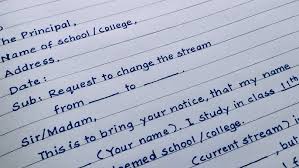 The Principal,
Name of school/college,
Address.
Date:
Sub: Request to change the stream
from ____ to ____.
Sir/Madam,
This is to bring your notice, that my name
(Your name). I study in class 11th
eemed school/college.
(current stream) is